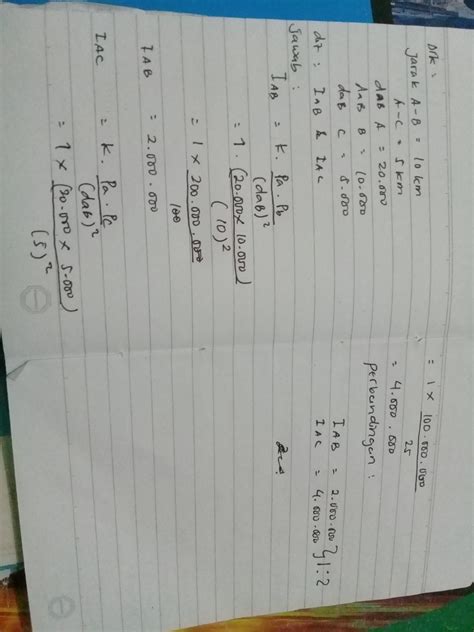 Dik :
Jarak A-B = 10 km
A-C = 5 km
daB A = 20.000
daB B = 10.000
daB C = 5.000
dt : I AB & I AC
Jawab :
I AB = k. Pa . Pb
(daB)²
= 1 . (20.000 x 10.000)
(10)²
= 1 x 200.000.000
100
I AB = 2.000.000
I AC = k. Pa . Pc
(daB)²
= 1 x (20.000 x 5.000)
(5)²
= 1 x 100.000.000
25
= 4.000.000
Perbandingan :
I AB = 2.000.000 } 1:2
I AC = 4.000.000